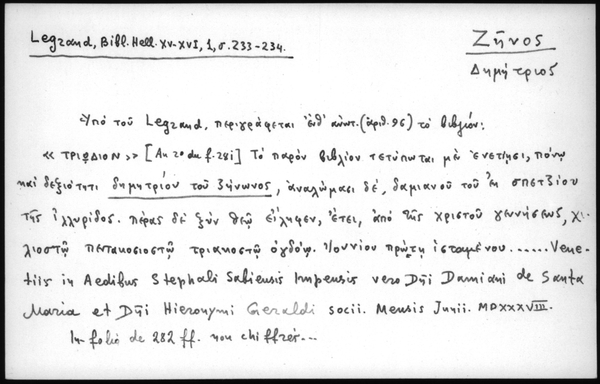 Legrand, Bibl. Hell. XV-XVI, 1, σ. 233-234.
Ζῆνος
Δημήτριος
Ὑπό τοῦ Legrand, περιγράφεται ἐνθ' ἀνωτ. (ἀριθ. 96) τό βιβλίον:
«ΤΡΙΩΔΙΟΝ» [Au ro du f. 281] Τό παρόν βιβλίον τετύπωται μέν ἐνετίησι, πόνῳ
καί δεξιότητι δημητρίου τοῦ ζήνωνος, ἀναλώμασι δέ, δαμιανοῦ τοῦ ἐκ σπετζίου
τῆς ἰλλυρίδος. πέρας δέ ξύν θεῷ εἴληφεν, ἔτει, ἀπό τῆς χριστοῦ γεννήσεως, χι-
λιοστῷ πεντακοσιοστῷ τριακοστῷ ὀγδόῳ. Ἰουνίου πρώτῃ ἱσταμένου...... Vene-
tiis in Aedibus Stephali Sabiensis Impensis vero Dñi Damiani de Santa
Maria et Dñi Hieronymi Geraldi socii. Mensis Junii. MDXXXVIII.
In-folio de 282 ff. non chiffrés...